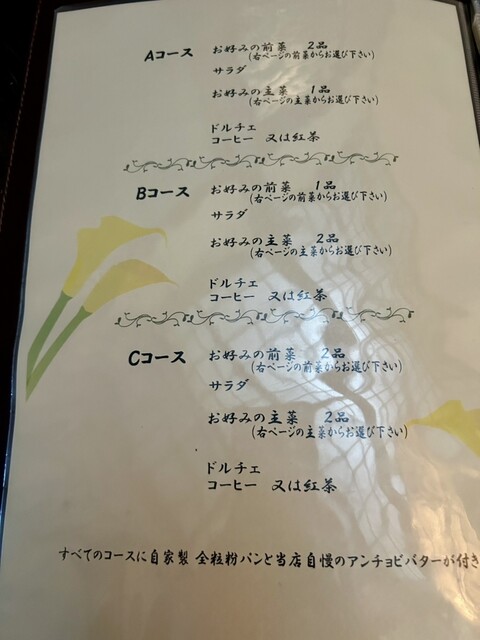 Aコース
お好みの前菜 2品
(右ページの前菜からお選び下さい)
サラダ
お好みの主菜 1品
(右ページの主菜からお選び下さい)
ドルチェ
コーヒー 又は紅茶
Bコース
お好みの前菜 1品
(右ページの前菜からお選び下さい)
サラダ
お好みの主菜 2品
(右ページの主菜からお選び下さい)
ドルチェ
コーヒー 又は紅茶
Cコース
お好みの前菜 2品
(右ページの前菜からお選び下さい)
サラダ
お好みの主菜 2品
(右ページの主菜からお選び下さい)
ドルチェ
コーヒー 又は紅茶
すべてのコースに自家製 全粒粉パンと当店自慢のアンチョビバターが付き